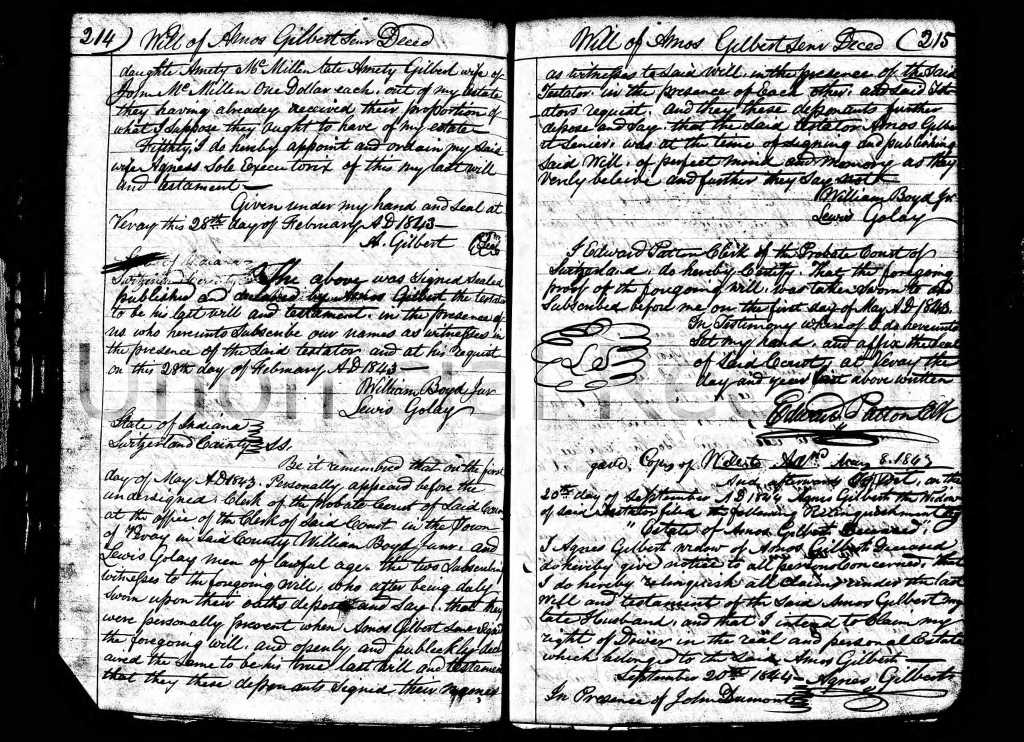 214) Will of Amos Gilbert Senr Deced
daughte Amety Mc Millen late Amety Gilbert wife of
John Mc Millen One Dollar each, out of my estate
they having already received their proportion of
what I suppose they ought to have of my estate
Fifthly, I do hereby appoint and ordain my said
wife Agness Sole Executorix of this my last will
and testament
Given under my hand and seal at
Vevay this 28th day of February AD 1843
A. Gilbert Seal
of Indiana
Switzerland County The above was signed sealed
published and declared by Amos Gilbert the testator
to be his last will and testament, in the presence of
us who hereunto Subscribe our names as witnesses in
the presence of the said testator and at his request
on this 28th day of February AD 1843
William Boyd Jur
Lewis Golay
State of Indiana
Switzerland County SS.
Be it remembered that on the first
day of May AD 1843. Personally appeard before the
undersigned, Clerk of the Probate Court of Said County
at the office of the Clerk of Said Court in the Town
of Vevay in said County William Boyd Junr. and
Lewis Golay men of lawful age, the two Subscribing
witnesses to the foregoing will, who after being duly
sworn upon their oaths depose and say, that they
were personally present when Amos Gilbert Senr Signed
the foregoing will, and openly and publickly decl
ared the same to be his true last will and testament
that they these deponants signed their names
Will of Amos Gilbert Senr Deced (215
as witnesses to said will, in the presence of the said
Testator in the presence of each other, and said test
ators request, and they these deponants further
depose and say, that the said testator Amos Gilber
t Senior, was at the time of signing and publishing
said Will, of perfect mind and memory as they
verily beleive and further they say not
William Boyd Jr.
Lewis Golay
I Edward Patton Clerk of the Probate Court of
Switzerland, do hereby Certify, That the foregoing
proof of the foregoing will, was taken sworn to and
Subscribed before me on the first day of May AD 1843.
In Testimony whereof I do hereunto
Set my hand, and affix the Seal
of Said County at Vevay the
day and year first above written
LS
Edward Patton Clk
gave Copy of Will to Admr May 8. 1843
And afterwards to wit, on the
20th day of September AD 1844 Agnes Gilbert the widow
of said testator filed the following Relinquishment
"Estate of Amos Gilbert Deceased"
I Agnes Gilbert widow of Amos Gilbert Deceased
do hereby give notice to all persons concerned, that
I do hereby relinquish all claim under the last
Will and testament of the said Amos Gilbert my
late Husband, and that I intend to claim my
right of Dower in the real and personal Estate
which belonged to the said Amos Gilbert
September 20th 1844 Agnes Gilbert
In Presence of John Dumont